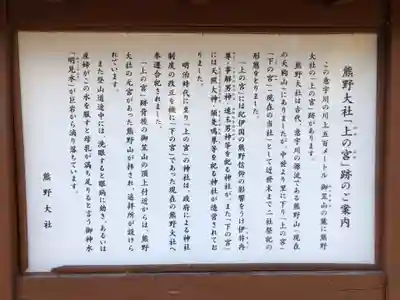 熊野大社「上の宮」跡のご案内
この意宇川の川上五百メートル 御笠山の麓に熊野
大社の「上の宮」跡があります。
熊野大社は古代、意宇川の源流である熊野山(現在
の天狗山)にありましたが、中世より里に下り「上の宮」
「下の宮」、現在の当社)として近世末まで二社祭祀の
形態をとりました。
「上の宮」には紀伊国の熊野信仰の影響をうけ伊邪冉
尊・事解男神・速玉男神等を祀る神社が、また「下の宮」
には天照大神・須羗鳴尊等を祀る神社が造営されてお
りました。
明治時代に至り「上の宮」の神社は、政府による神社
制度の改正を機に「下の宮」であった現在の熊野大社へ
奉遷合祀されました。
「上の宮」跡背後の御笠山の頂上付近からは、熊野
大社の元宮があった熊野山が拝され、遥拝所が設けら
れています。
また登山道途中には、洗眼すると眼病に効き、あるいは
産婦がこの水を服すと母乳が満ち足りると言う御神水
「明見水」が巨岩から滴り落ちています。
熊野大社